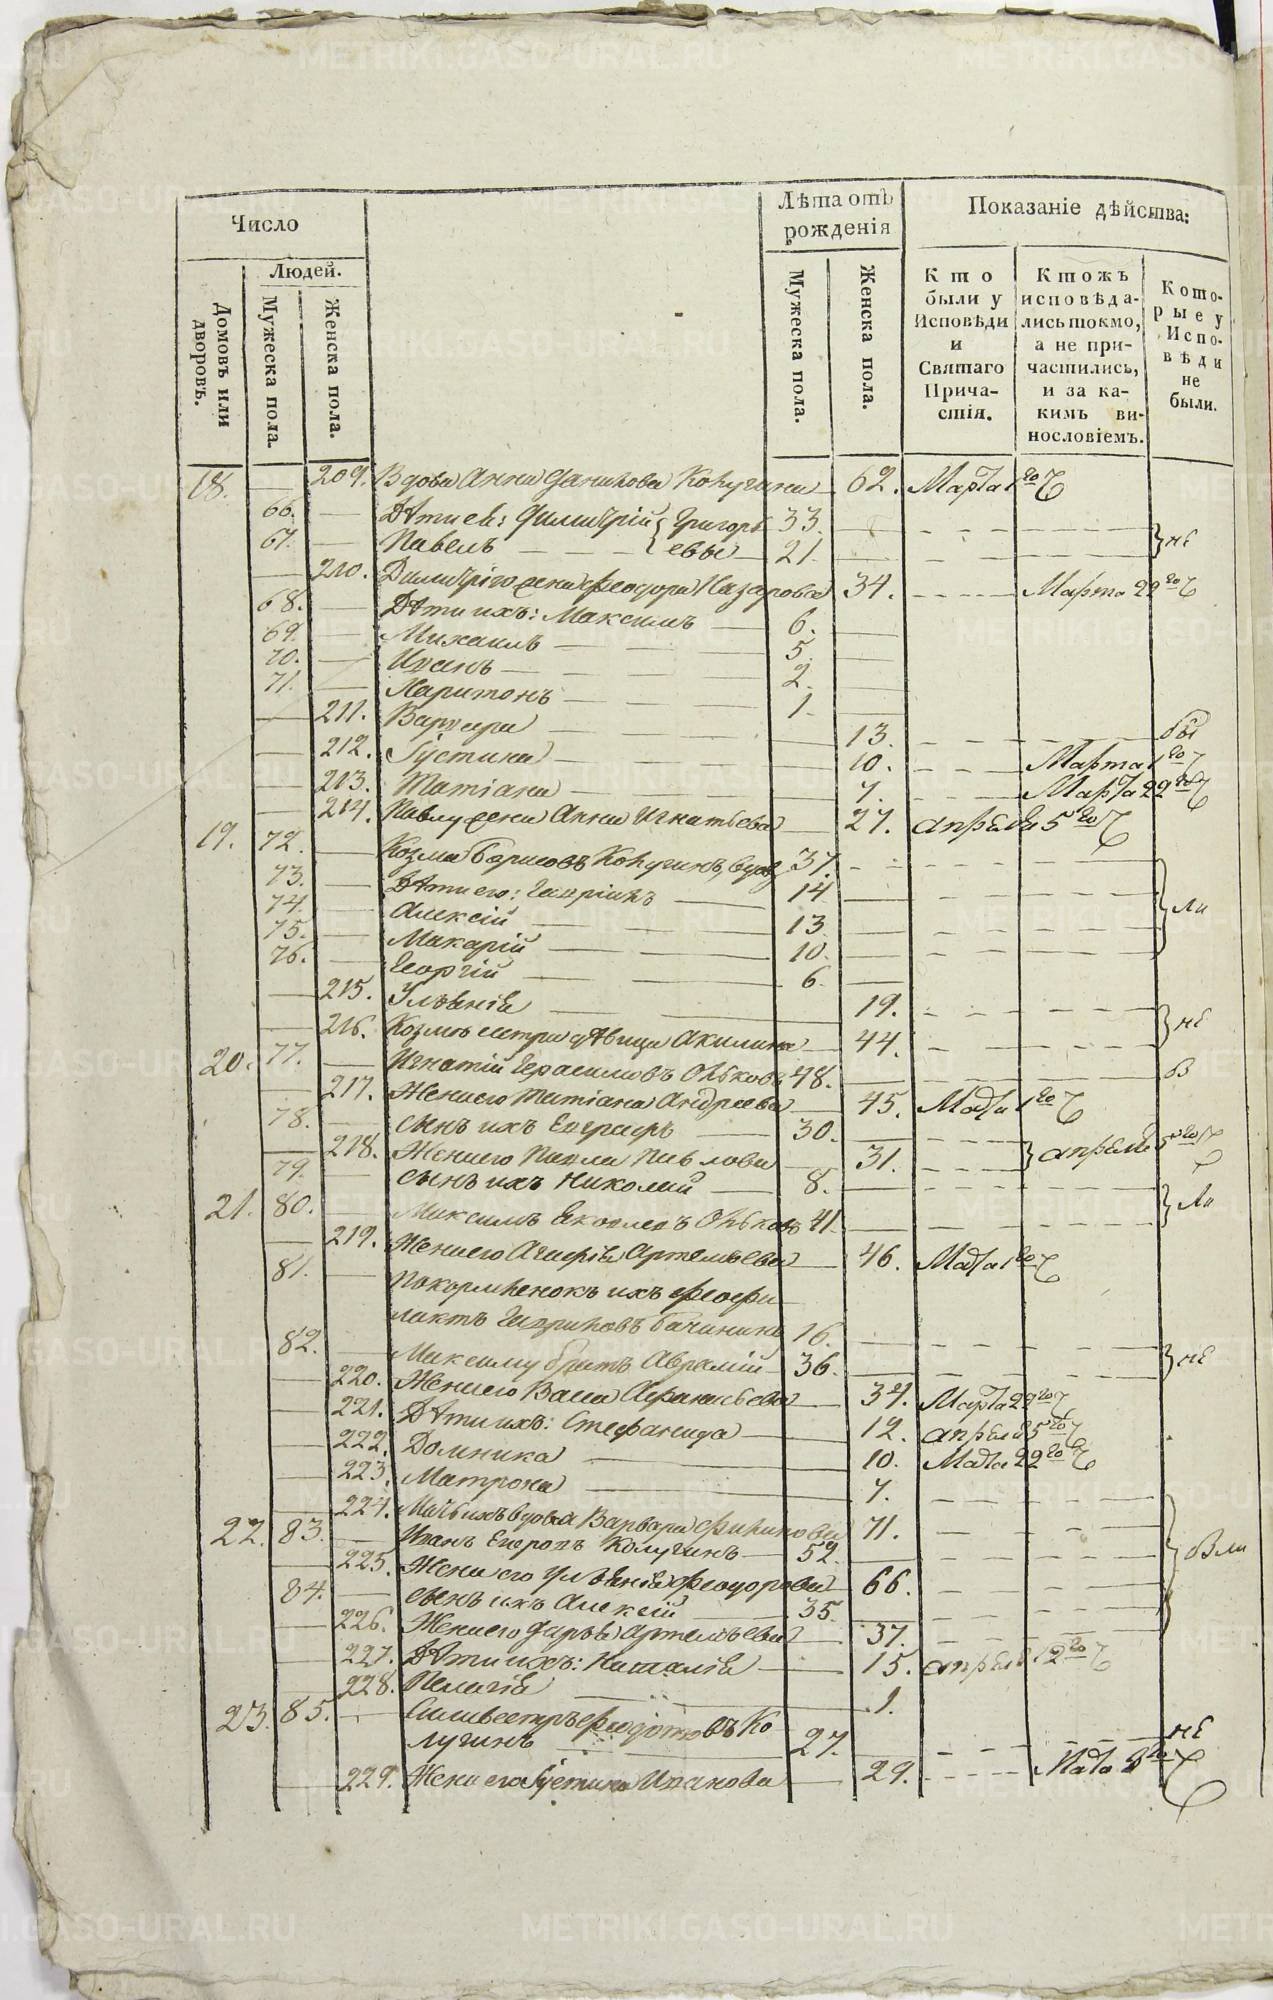 Число
Людей.
Домовъ или дворовъ.
Мужеска пола.
Женска пола.
Лѣта отъ рожденія
Мужеска пола.
Женска пола.
Показаніе дѣйства:
Кто были у Исповѣди и Святаго Причастія.
Ктожъ исповѣдались токмо, а не причастились, и за какимъ винословіемъ.
Которые у Исповѣди не были.
18. — 209. Вдова Анна Данилова Колугина — 62. Марта 1го
66. — Дѣти ея: Димитрій { Григорь 33.
67. — Павелъ — — { евы — 21. не
— 210. Димитрія жена Феодора Назарова 34. Марта 22го
68. — Дѣти ихъ: Максимъ — 6.
69. — Михаилъ — 5.
70. — Иванъ — 2.
71. — Харитонъ — 1.
— 211. Варвара — 13. бы
— 212. Густина — 10. Марта 1го
— 213. Татіана — 7. Марта 22го
— 214. Павлу жена Анна Игнатьева — 27. апреля 5го
19. 72. — Козма Борисовъ Колугинъ, вдов 37.
73. — Дѣти его: Гавріилъ — 14
74. — Алексій — 13 ли
75. — Макарій — 10.
76. — Георгій — 6.
— 215. Ульянія — 19.
— 216. Козмы сестра дѣвица Акилина — 44. не
20. 77. — Игнатій Герасимовъ Ольковъ 48. в
— 217. Жена его Татіана Андреева — 45. Марта 1го
78. — сынъ ихъ Евграфъ — 30.
— 218. Жена его Павла Павлова — 31. апреля 5го
79. — сынъ ихъ Николай — 8.
21. 80. — Максимъ Яковлевъ Ольковъ 41. ли
— 219. Жена его Агафія Артемьева — 46. Марта 1го
81. — Покормленокъ ихъ Феофи
лактъ Гавриловъ Бачининъ 16.
82. — Максиму братъ Аврамій — 36. не
— 220. Жена его Васса Афанасьева — 34. Марта 22го
— 221. Дѣти ихъ: Стефанида — 12. апреля 5го
— 222. Домника — 10. Марта 22го
— 223. Матрона — 7.
— 224. Мать ихъ вдова Варвара Филипова 71.
22. 83. — Иванъ Егоровъ Колугинъ — 52.
— 225. Жена его Ульянія Феодорова — 66. вли
84. — сынъ ихъ Алексій — 35.
— 226. Жена его Дарья Артемьева — 37.
— 227. Дѣти ихъ: Наталія — 15. апреля 12го
— 228. Пелагія — 1.
23. 85. — Сильвестръ Федотовъ Ко
лугинъ — 27. не
— 229. Жена его Густина Иванова — 29.
METRIKI.GASO-URAL.RU